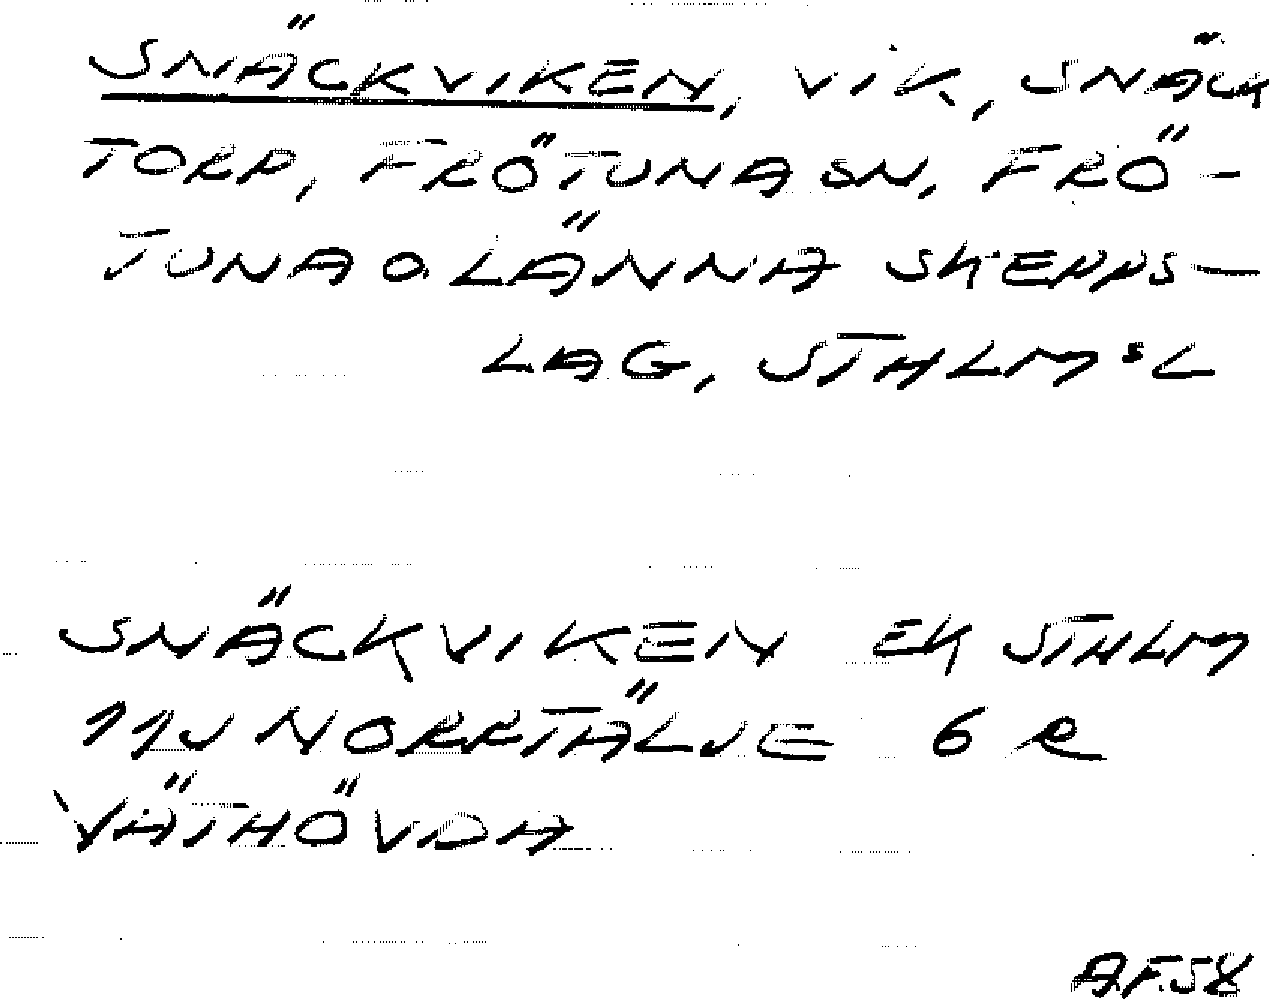 SNÄCKVIKEN, VIK, SNÄCK
TORP, FRÖTUNA SN, FRÖ-
TUNA O LÄNNA SKEPPS-
LAG, STHLMS L
SNÄCKVIKEN EK STHLM
11J NORRTÄLJE 6 R
VÄTHÖVDA
A.F.58